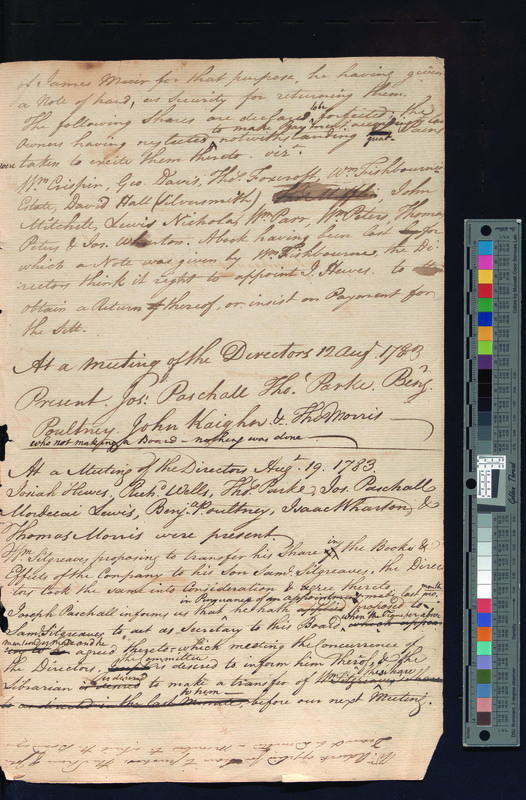 of James Muir for that purpose, he having given
a Note of hand, as Security for returning them.
The following Shares are declared to be forfeited, the
Owners having neglected to make Payment notwithstanding great Pains
were taken to excite them thereto. vizt.
Wm. Crispin, Geo. Davis, Thos. Foxcroft, Wm. Fishbourne's
Estate, David Hall (Silversmith), John
Mitchell, Lewis Nicholas, Wm. Parr, Wm. Peters, Thomas
Peters & Jos. Wharton. A book having been lost for
which a Note was given by Wm. Fishbourne, the Di-
rectors think it right to appoint J. Hewes to
obtain a Return thereof, or insist on Payment for
the Sett.
At a meeting of the Directors 12 Augt. 1783
Present. Jos. Paschall Tho. Parke. Benj.
Poultney. John Kaighn & Tho Morris
who not making a Board - nothing was done
At a Meeting of the Directors Augt. 19. 1783.
Josiah Hewes, Richd. Wells, Thos. Parke, Jos. Paschall
Mordecai Lewis, Benja. Poultney, Isaac Wharton &
Thomas Morris were present.
Wm. Sitgreaves proposing to transfer his Share in the Books &
Effects of the Company to his Son Saml. Sitgreaves. the Direc
tors took the same into Consideration & agree thereto.
in Pursuance of an make last month
Joseph Paschall informs us that he hath applied proposed to
Saml. Sitgreaves to act as Secretary to this Board, when the
agreed thereto which meeting the Concurrence of
the Directors. the Committee is ordered to inform him thereof, & the
Librarian is desired to make a transfer of Wm. Sitgreaves share
to him
to as directed in the last Minute, before our next Meeting.